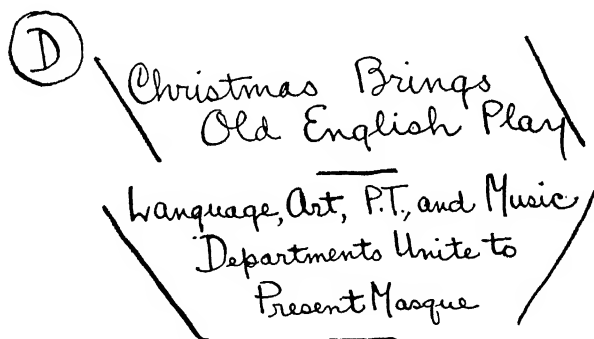 D
Christmas Brings
Old English Play
Language, Art, P.T., and Music
Departments Unite to
Present Masque